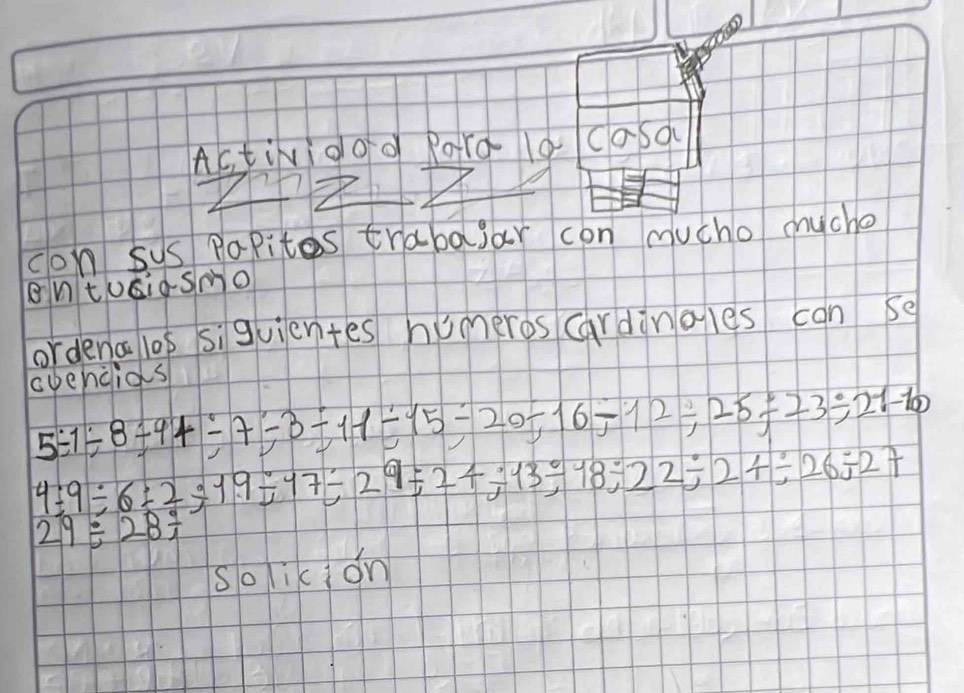 Actividad Para la casa
con sus Papitos trabajar con mucho mucho
entuciasmo
ordena los siguientes números cardinales con se
cuencias
5÷1÷8÷94÷7÷3÷11÷15÷20÷16÷12÷25÷23÷21-10
4÷9÷6÷2÷19÷17÷29÷24÷13÷18÷22÷24÷26÷27
29÷28÷
solición